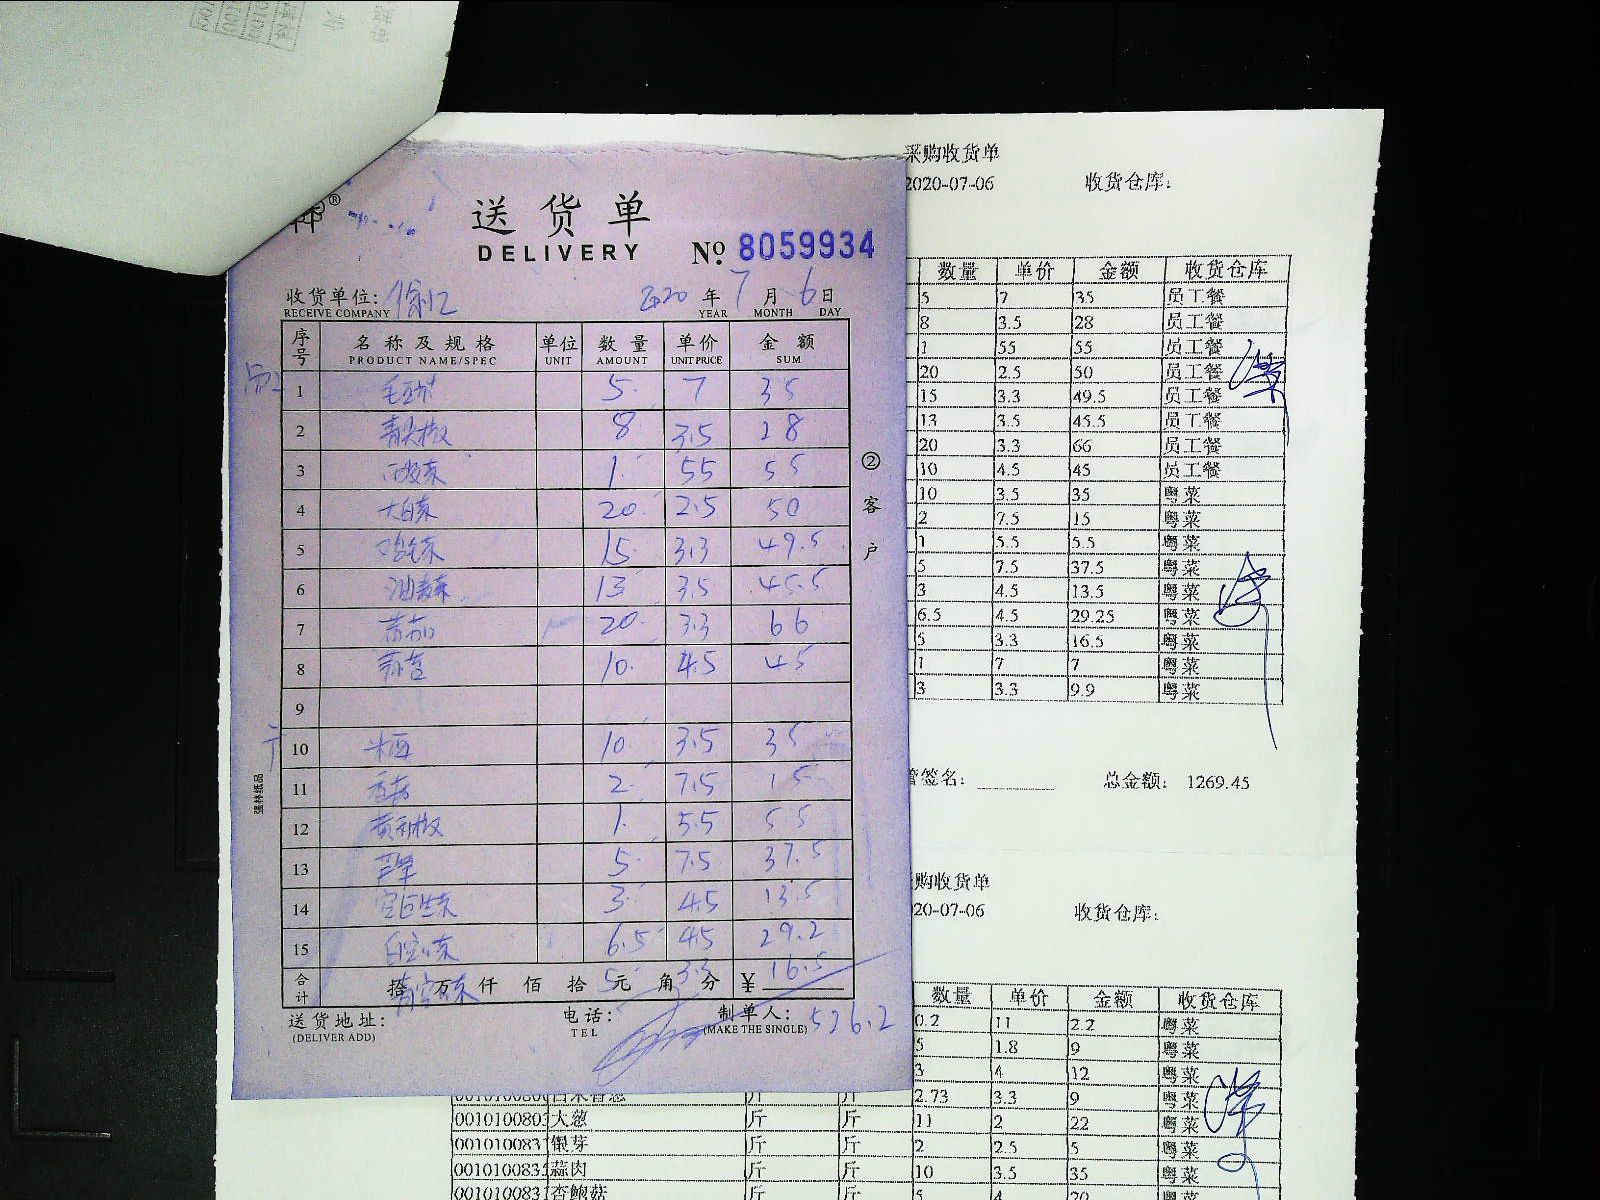 送货单
DELIVERY
№ 8059934
收货单位:
RECEIVE COMPANY
2020 年 7 月 6 日
YEAR MONTH DAY
序号 名称及规格 单位 数量 单价 金额
PRODUCT NAME/SPEC UNIT AMOUNT UNIT PRICE SUM
1 毛豆 5 7 35
2 青尖椒 8 3.5 28
3 1 55 55
4 大白菜 20 2.5 50
5 15 3.3 49.5
6 油麦菜 13 3.5 45.5
7 20 3.3 66
8 10 4.5 45
9
10 10 3.5 35
11 2 7.5 15
12 1 5.5 5.5
13 5 7.5 37.5
14 3 4.5 13.5
15 6.5 4.5 29.2
合计 拾 万 仟 佰 拾 元 角 分 ¥
5 3.3 16.5
送货地址:
(DELIVER ADD)
电话:
TEL
制单人:
(MAKE THE SINGLE)
526.2
② 客户
强林纸品
采购收货单
2020-07-06 收货仓库:
数量 单价 金额 收货仓库
5 7 35 员工餐
8 3.5 28 员工餐
1 55 55 员工餐
20 2.5 50 员工餐
15 3.3 49.5 员工餐
13 3.5 45.5 员工餐
20 3.3 66 员工餐
10 4.5 45 员工餐
10 3.5 35 粤菜
2 7.5 15 粤菜
1 5.5 5.5 粤菜
5 7.5 37.5 粤菜
3 4.5 13.5 粤菜
6.5 4.5 29.25 粤菜
5 3.3 16.5 粤菜
1 7 7 粤菜
3 3.3 9.9 粤菜
管签名: 总金额: 1269.45
购收货单
20-07-06 收货仓库:
数量 单价 金额 收货仓库
0.2 11 2.2 粤菜
5 1.8 9 粤菜
3 4 12 粤菜
2.73 3.3 9 粤菜
001010080 大葱 斤 斤 11 2 22 粤菜
001010083 银芽 斤 斤 2 2.5 5 粤菜
001010083 蒜肉 斤 斤 10 3.5 35 粤菜
001010083 杏鲍菇 斤 斤 5 4 20 粤菜